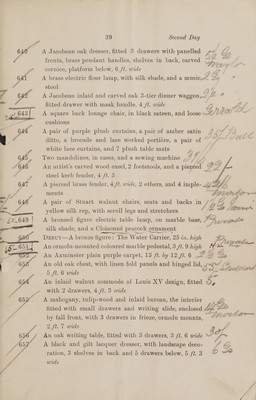 640 Second Day
640 A Jacobean oak dresser, fitted 3 drawers with panelled
fronts, brass pendant handles, shelves in back, carved
cornice, platform below, 6 ft. wide
641 A brass electric floor lamp, with silk shade, and a music
stool
642 A Jacobean inlaid and carved oak 2-tier dinner waggon,
fitted drawer with mask handle, 4 ft. wide
643 A square back lounge chair, in black sateen, and loose
cushions
644 A pair of purple plush curtains, a pair of amber satin
ditto, a brocade and lace worked portière, a pair of
white lace curtains, and 7 plush table mats
645 Two mandolines, in cases, and a sewing machine
646 An artist's carved wood easel, 2 footstools, and a pierced
steel kerb fender, 4 ft. 3
647 A pierced brass fender, 4 ft. wide, 2 others, and 4 imple-
ments
648 A pair of Stuart walnut chairs, seats and backs in
yellow silk rep, with scroll legs and stretchers
649 A bronzed figure electric table lamp, on marble base,
silk shade, and a Cloisonné peacock ornament
650 A bronze figure: The Water Carrier, 25 in. high
651 An ormolu-mounted coloured marble pedestal, 3 ft. 9 high
652 An Axminster plain purple carpet, 13 ft. by 12 ft. 6
653 An old oak chest, with linen fold panels and hinged lid,
5 ft. 6 wide
654 An inlaid walnut commode of Louis XV design, fitted
with 2 drawers, 4 ft. 3 wide
655 A mahogany, tulip-wood and inlaid bureau, the interior
fitted with small drawers and writing slide, enclosed
by fall front, with 3 drawers in frieze, ormolu mounts,
2 ft. 7 wide
656 An oak writing table, fitted with 3 drawers, 3 ft. 6 wide
657 A black and gilt lacquer dresser, with landscape deco-
ration, 3 shelves in back and 5 drawers below, 5 ft. 3
wide